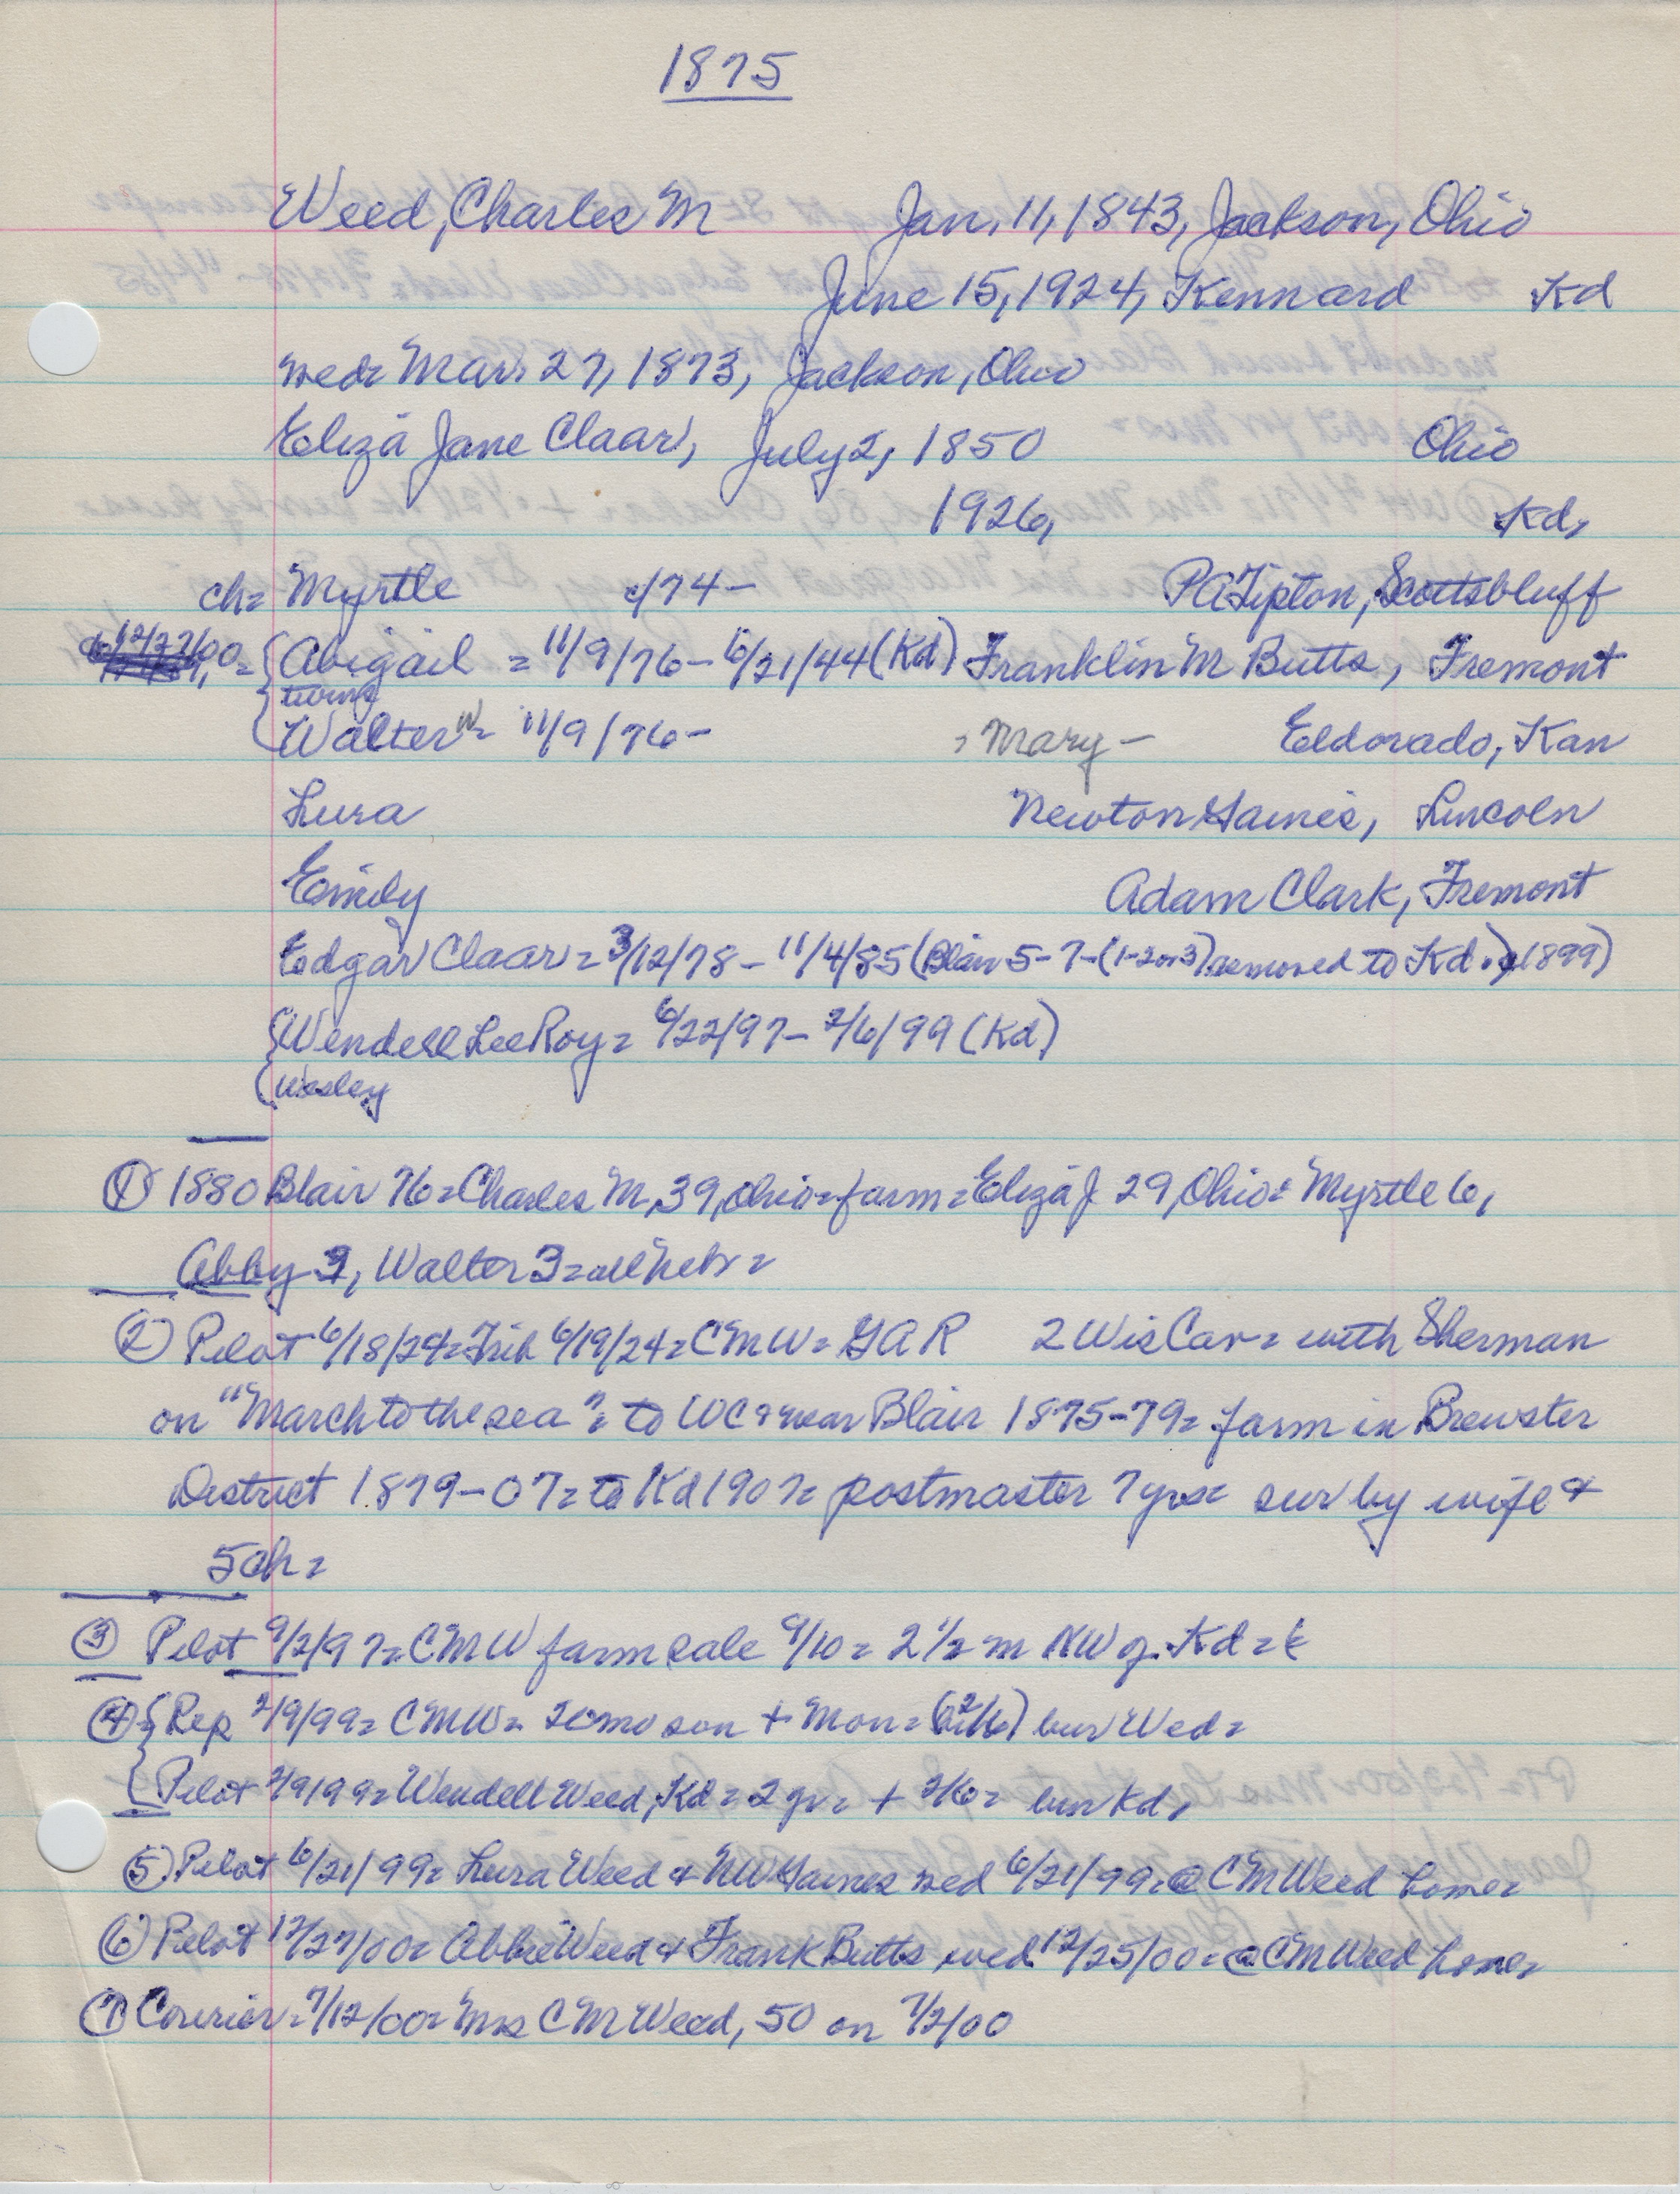 1875
Weed, Charles M Jan. 11, 1843, Jackson, Ohio
June 15, 1924, Kennard Kd
wed= Mar. 27, 1873, Jackson, Ohio
Eliza Jane Claar, July 2, 1850 Ohio
1926, Kd,
ch= Myrtle c/74- PA Tipton, Scottsbluff
12/27/00= {Abigail = 11/9/76- 6/21/44 (Kd) Franklin M Butts, Fremont
twins
Walter W= 11/9/76- , Mary- Eldorado, Kan
Lura Newton Gaines, Lincoln
Emily Adam Clark, Fremont
Edgar Claar= 3/12/78- 11/4/85 (Blair 5-7-(1-2 or 3) removed to Kd. 1899)
{Wendell LeeRoy= 6/22/97- 2/6/99 (Kd)
(Wesley
① 1880 Blair 76= Charles M, 39, Ohio= farm= Eliza J 29, Ohio= Myrtle 6,
Abby 3, Walter 3= all Neb=
② Pilot 6/18/24= Trib 6/19/24= CMW= GAR 2 Wis Cav= with Sherman
on "March to the sea"= to WC & near Blair 1875-79= farm in Brewster
District 1879-07= to Kd 1907= postmaster 7 yrs= sur by wife &
5 ch=
③ Pilot 9/2/97= CMW farm sale 9/10= 2 1/2 m NW of Kd=
④ {Rep 2/9/99= CMW= 20 mo son + Mon= (2/6) bur Wed=
{Pilot 2/9/99= Wendell Weed, Kd= 2 yr= + 2/6= bur Kd,
⑤ Pilot 6/21/99= Lura Weed & NW Gaines wed 6/21/99= @ CM Weed home=
⑥ Pilot 12/27/00= Abbie Weed & Frank Butts wed 12/25/00= @ CM Weed home=
⑦ Courier= 7/12/00= Mrs CM Weed, 50 on 7/2/00